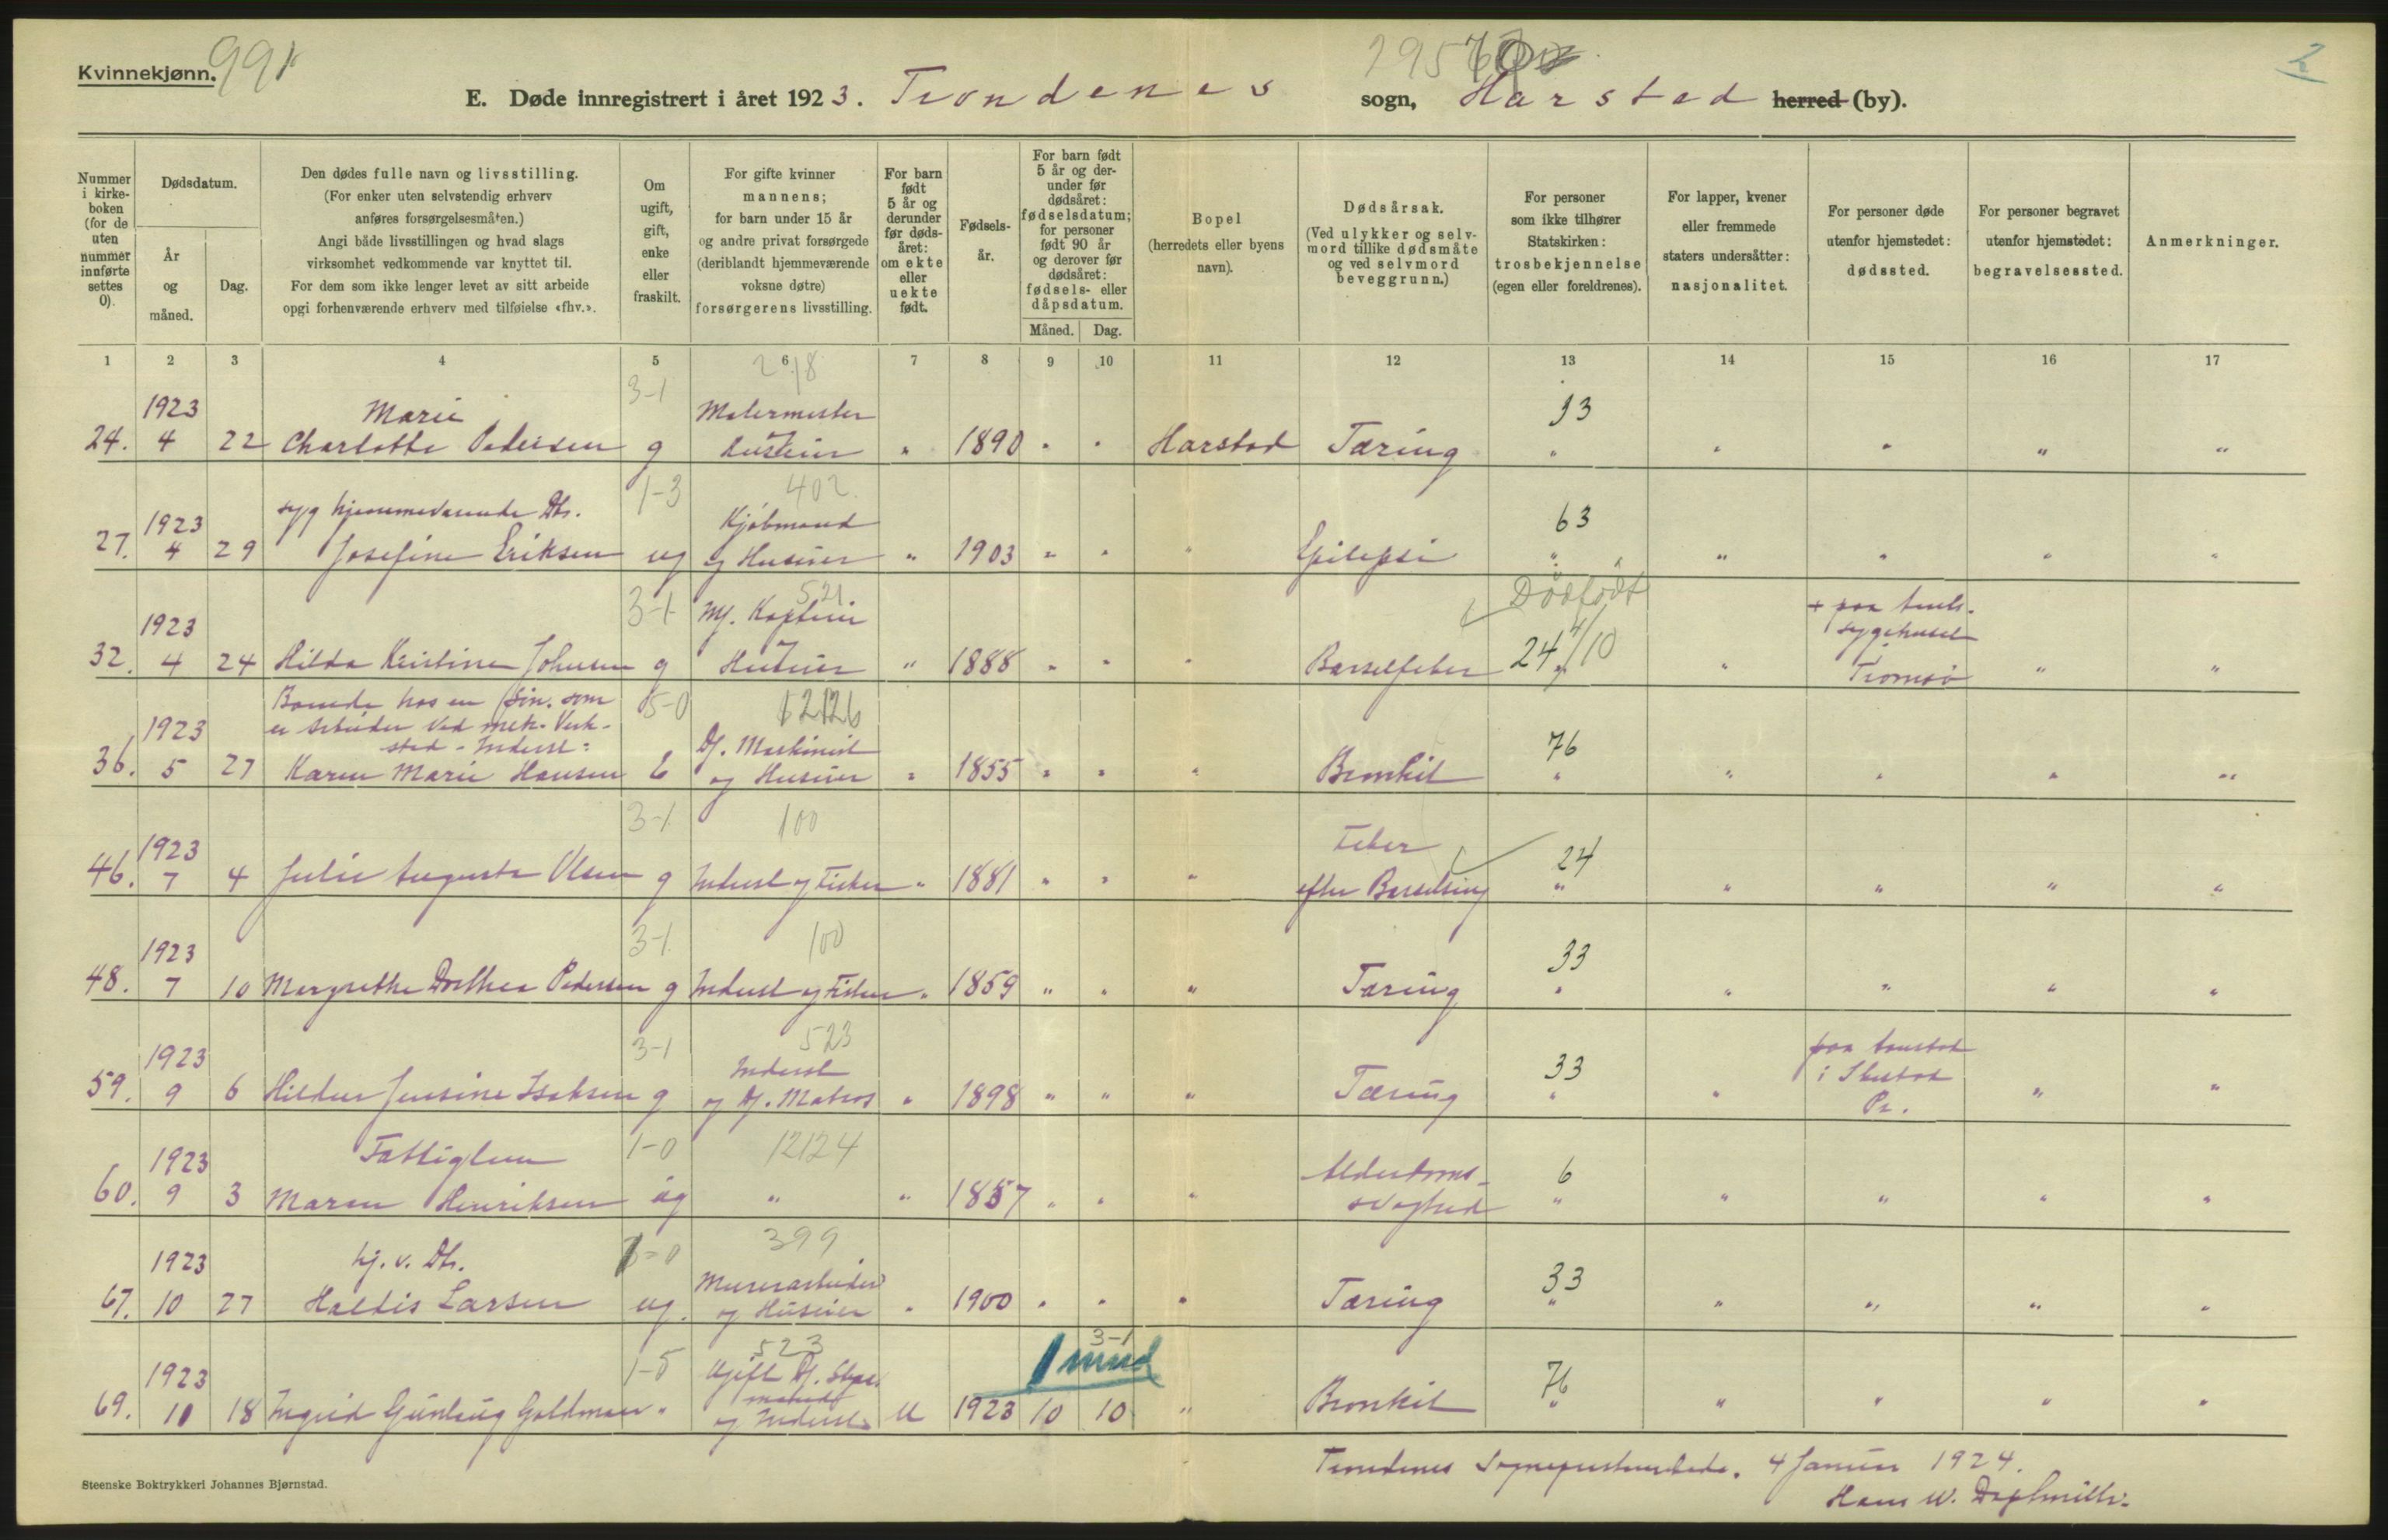 Kvinnekjønn. 991
2
E. Døde innregistrert i året 1923. Trondenes sogn, Harstad herred (by).
Nummer i kirkeboken (for de uten nummer innførte settes 0).
Dødsdatum.
År og måned.
Dag.
Den dødes fulle navn og livsstilling.
(For enker uten selvstendig erhverv anføres forsørgelsesmåten.)
Angi både livsstillingen og hvad slags virksomhet vedkommende var knyttet til.
For dem som ikke lenger levet av sitt arbeide opgi forhenværende erhverv med tilføielse «fhv.».
Om ugift, gift, enke eller fraskilt.
For gifte kvinner mannens; for barn under 15 år og andre privat forsørgede (deriblandt hjemmeværende voksne døtre) forsørgerens livsstilling.
For barn født 5 år og derunder før dødsåret: om ekte eller uekte født.
Fødselsår.
For barn født 5 år og derunder før dødsåret: fødselsdatum; for personer født 90 år og derover før dødsåret: fødsels- eller dåpsdatum.
Måned. Dag.
Bopel (herredets eller byens navn).
Dødsårsak. (Ved ulykker og selvmord tillike dødsmåte og ved selvmord beveggrunn.)
For personer som ikke tilhører Statskirken: trosbekjennelse (egen eller foreldrenes).
For lapper, kvener eller fremmede staters undersåtter: nasjonalitet.
For personer døde utenfor hjemstedet: dødssted.
For personer begravet utenfor hjemstedet: begravelsessted.
Anmerkninger.
1 2 3 4 5 6 7 8 9 10 11 12 13 14 15 16 17
3-1 218
1923 Marie Malermester
24. 4 22 Charlotte Pedersen g Huseier " 1890 " " Harstad Tæring " " " " "
1-3 402
1923 syg hjemmeværende Dtr. Kjøbmand 63
27. 4 29 Josefine Eriksen ug og Huseier " 1903 " " " Epilepsi " " " " "
3-1 521 Dødfødt
1923 Kaptein 24 4/10 + paa Amts-sygehuset
32. 4 24 Hilda Kristine Johnsen g Huseier " 1888 " " " Barselfeber " " Tromsø " "
Boende hos en Søn, som 5-0 12126
1923 er Arbeider ved mek. Verk-
sted - Inderst: Df. Maskinist 76
36. 5 27 Karen Marie Hansen E og Huseier " 1855 " " " Bronkit " " " " "
3-1 100
1923 Feber 24
46. 7 4 Julie Augusta Olsen g Inderst og Fisker " 1881 " " " efter Barselseng " " " " "
3-1 100
1923 33
48. 7 10 Margrethe Dorthea Pedersen g Inderst og Fisker " 1859 " " " Tæring " " " " "
3-1 523
1923 Inderst 33 paa
59. 9 6 Hildur Jensine Isaksen g og Df. Matros " 1898 " " " Tæring " " i Ibestad Pr. " "
1-0 12124
1923 Fattiglem Alderdoms- 6
60. 9 3 Maren Henriksen ug " " 1857 " " " svaghed " " " " "
-0 399
1923 hj. v. Dtr. Murerarbeider 33
67. 10 27 Haldis Larsen ug. og Huseier " 1900 " " " Tæring " " " " "
1-5 523 3-1
1 mnd
1923 Ugift Df. 76
69. 11 18 Ingrid Gunlaug Goldman " og Inderst U 1923 10 10 " Bronkit " " " " "
Trondenes Sogneprestembede, 4 Januar 1924.
Hans W.
Steenske Boktrykkeri Johannes Bjørnstad.